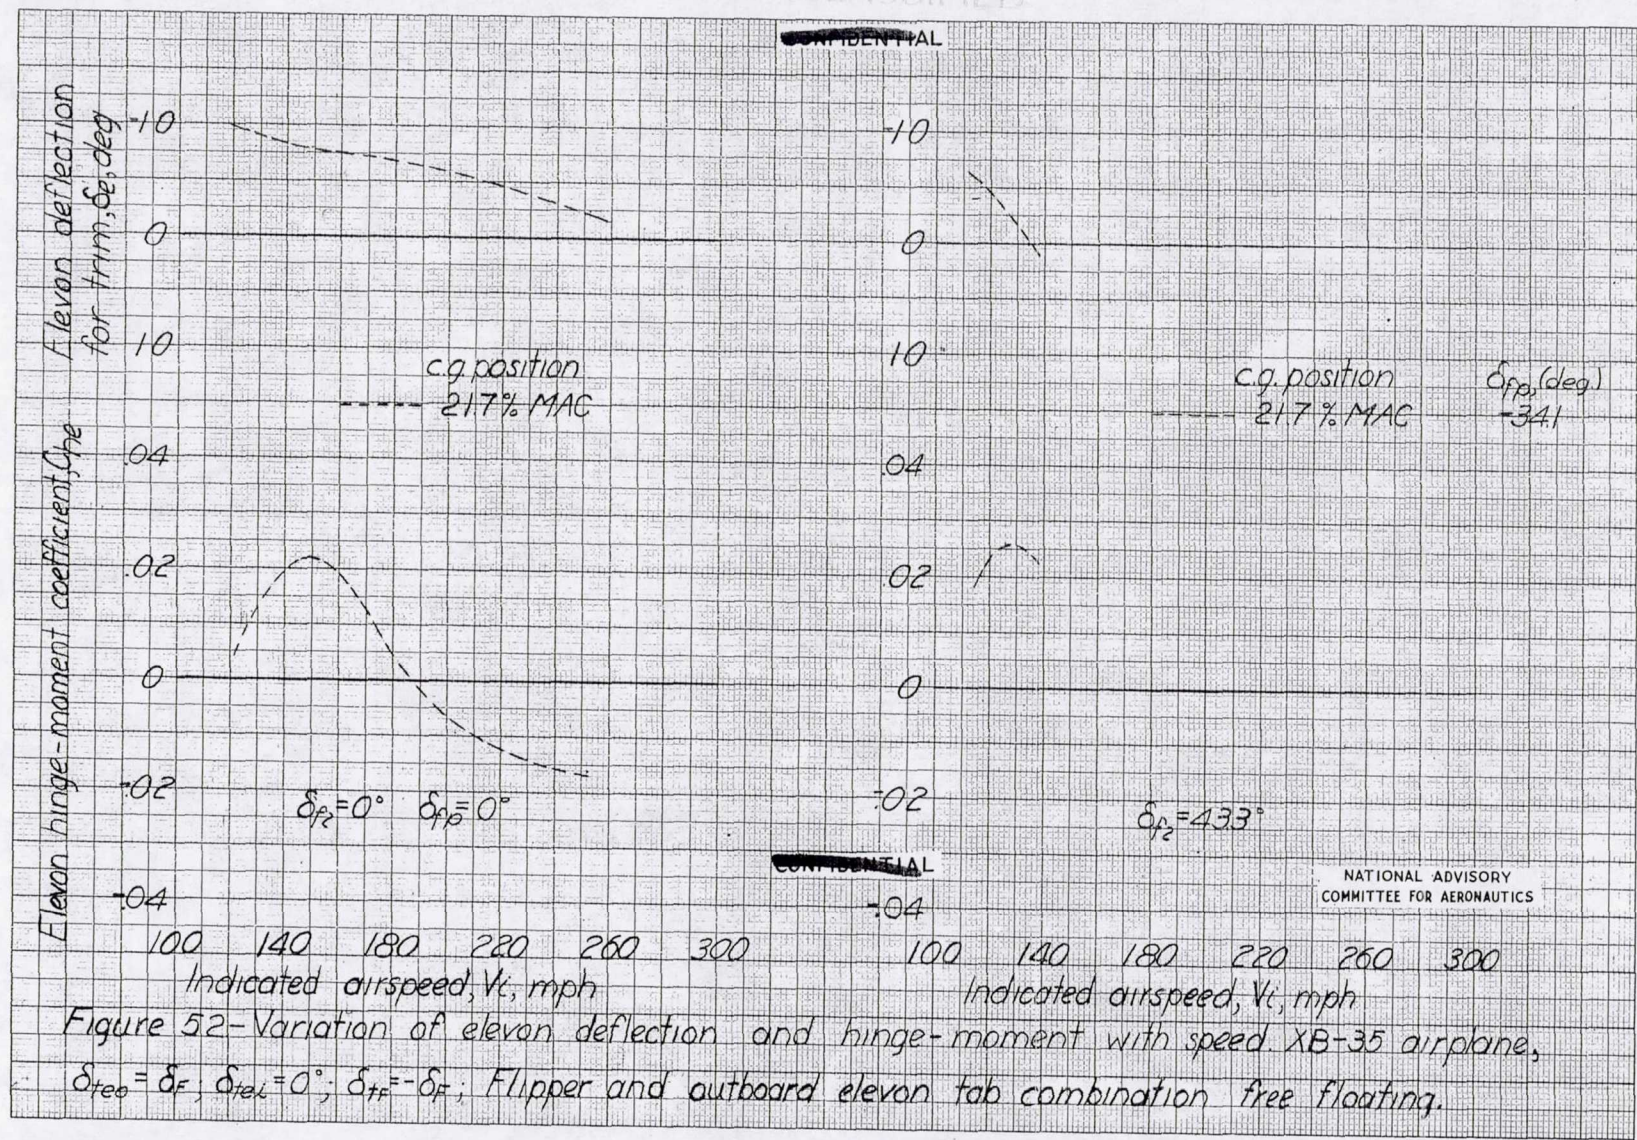 CONFIDENTIAL
Elevon deflection
for trim, δe, deg
-10
0
10
c.g. position
21.7% MAC
Elevon hinge-moment coefficient, Che
.04
.02
0
-.02
-.04
δf2=0° δfp=0°
100 140 180 220 260 300
Indicated airspeed, Vi, mph
-10
0
10
c.g. position δfp, (deg)
21.7% MAC -34.1
.04
.02
0
-.02
-.04
δf2=43.3°
CONFIDENTIAL
NATIONAL ADVISORY
COMMITTEE FOR AERONAUTICS
100 140 180 220 260 300
Indicated airspeed, Vi, mph
Figure 52-Variation of elevon deflection and hinge-moment with speed. XB-35 airplane,
δteo = δF; δtei = 0°; δtF = -δF; Flipper and outboard elevon tab combination free floating.